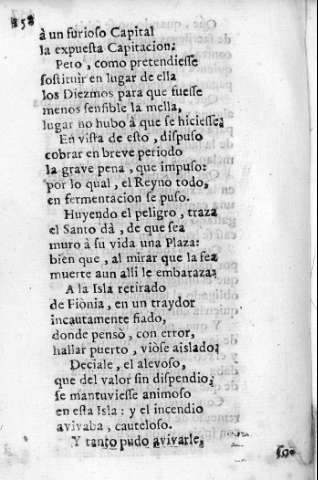 258
à un furioso Capital
la expuesta Capitacion:
Pero, como pretendiesse
sostituìr en lugar de ella
los Diezmos para que fuesse
menos sensible la mella,
lugar no hubo à que se hiciesse;
En vista de esto, dispuso
cobrar en breve periodo
la grave pena, que impuso:
por lo qual, el Reyno todo,
en fermentacion se puso.
Huyendo el peligro, traza
el Santo dà, de que sea
muro à su vida una Plaza:
bien que, al mirar que la sea
muerte aun alli le embaraza:
A la Isla retirado
de Fiònia, en un traydor
incautamente fiado,
donde pensò, con error,
hallar puerto, viòse aislado;
Deciale, el alevoso,
que del valor sin dispendio,
se mantuviesse animoso
en esta Isla: y el incendio
avivaba, cauteloso.
Y tanto pudo avivarle,